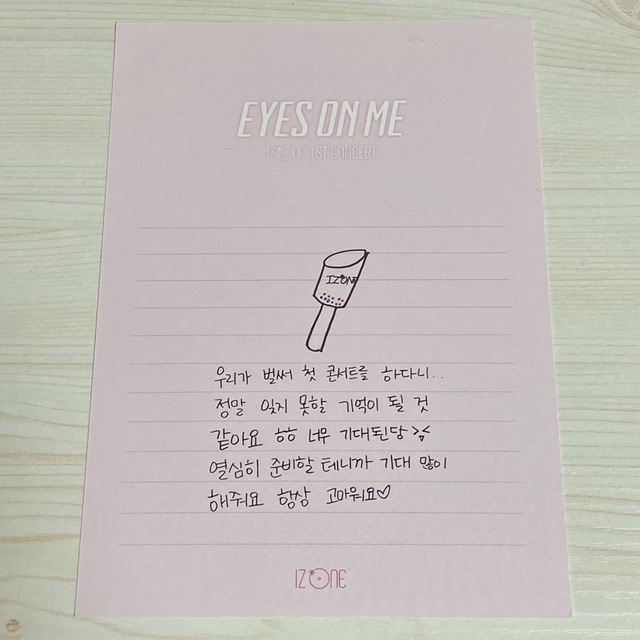 EYES ON ME
IZ*ONE 1ST CONCERT
IZ*ONE
우리가 벌써 첫 콘서트를 하다니..
정말 잊지 못할 기억이 될 것
같아요 ㅎㅎ 너무 기대된당 >.<
열심히 준비할 테니까 기대 많이
해줘요 항상 고마워요♡
IZ*ONE